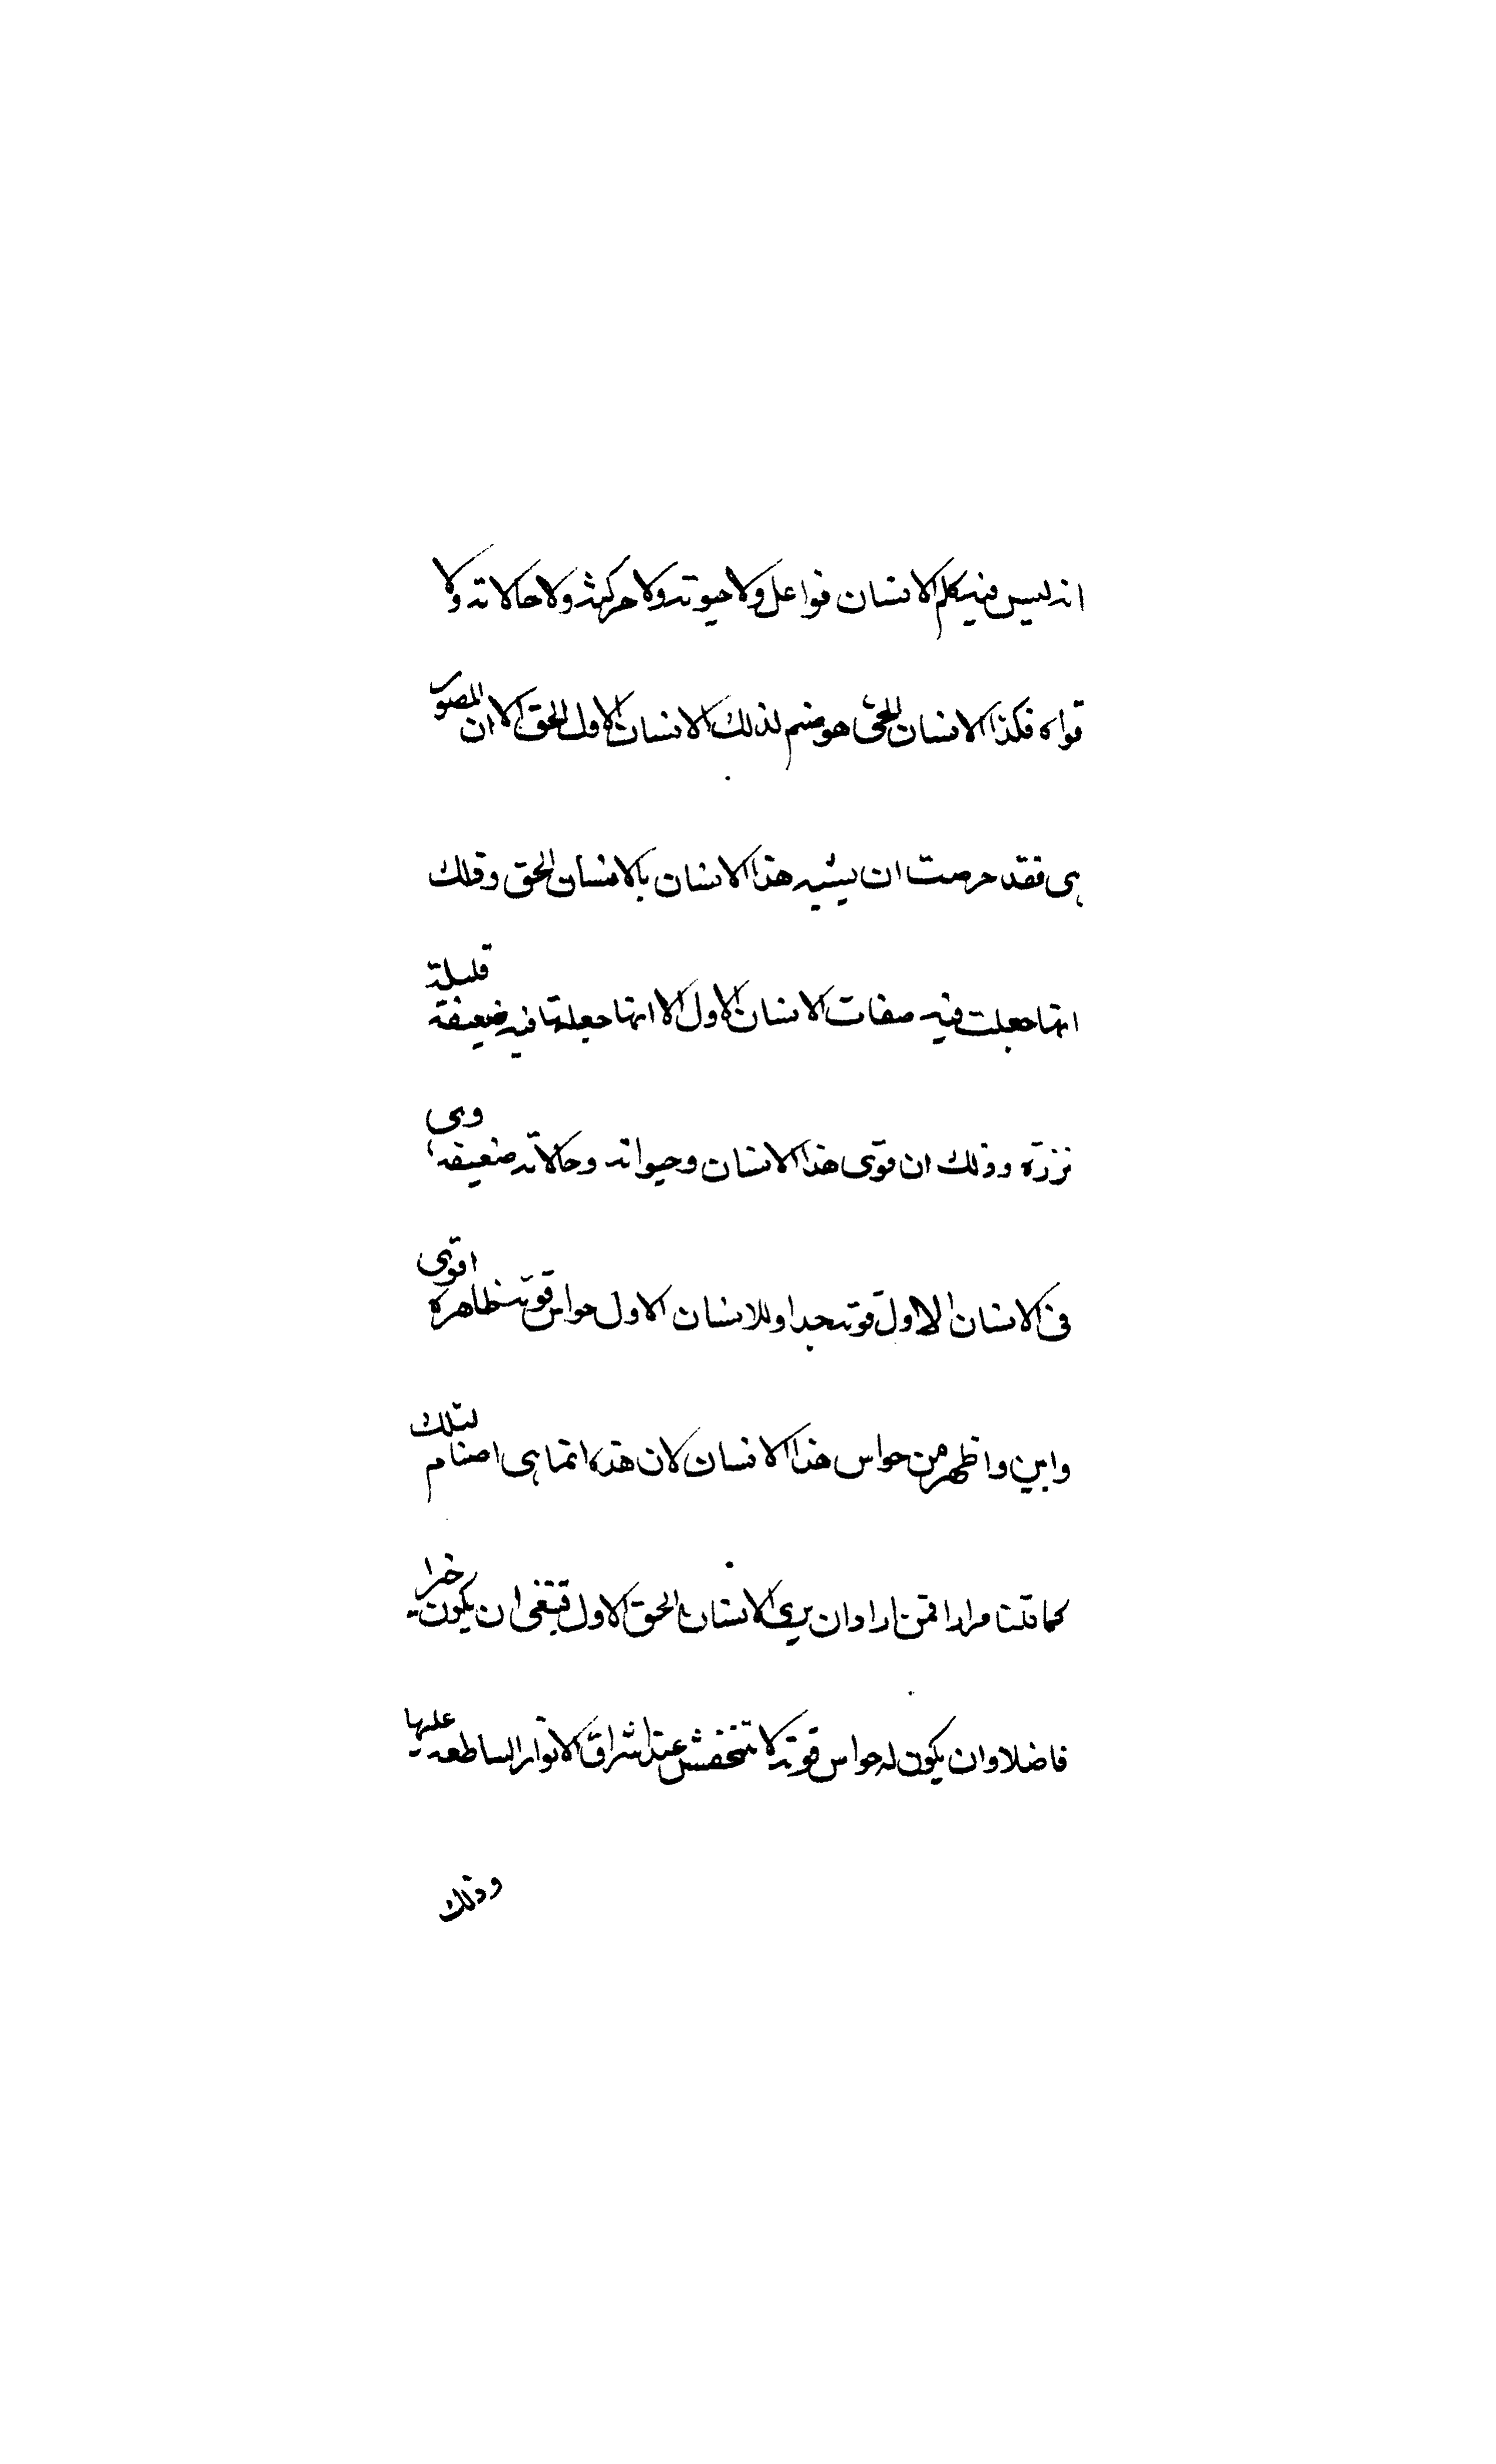 انه ليس فيه كلم الانسان فواعل ولا حيوته ولا حركته ولا حالاته ولا
قواه فكذا الانسان الحى هو صنم لذلك الانسان الاول الحق الا ان المصور
هى فقد حرصت ان يشبه هذا الانسان بالانسان الحق وذلك
انها جعلت فيه صفات الانسان الاول الا انها جعلتها فيه ضعيفة قليلة
نزرة وذلك ان قوى هذا الانسان وحيواته وحالاته ضعيفة وهى
فى الانسان الاول قوية جدا وللانسان الاول حواس قوية ظاهرة اقوى
وابين واظهر من حواس هذا الانسان لان هذه انما هى اصنام لتلك
كما قلنا مرارا فمن اراد ان يرى الانسان الحق الاول فينبغى ان يكون خيرا
فاضلا وان يكون له حواس قوية لا تنخفش عند اشراق الانوار الساطعة عليها
وذلك